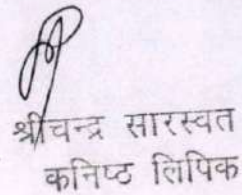 श्रीचन्द्र सारस्वत
कनिष्ठ लिपिक